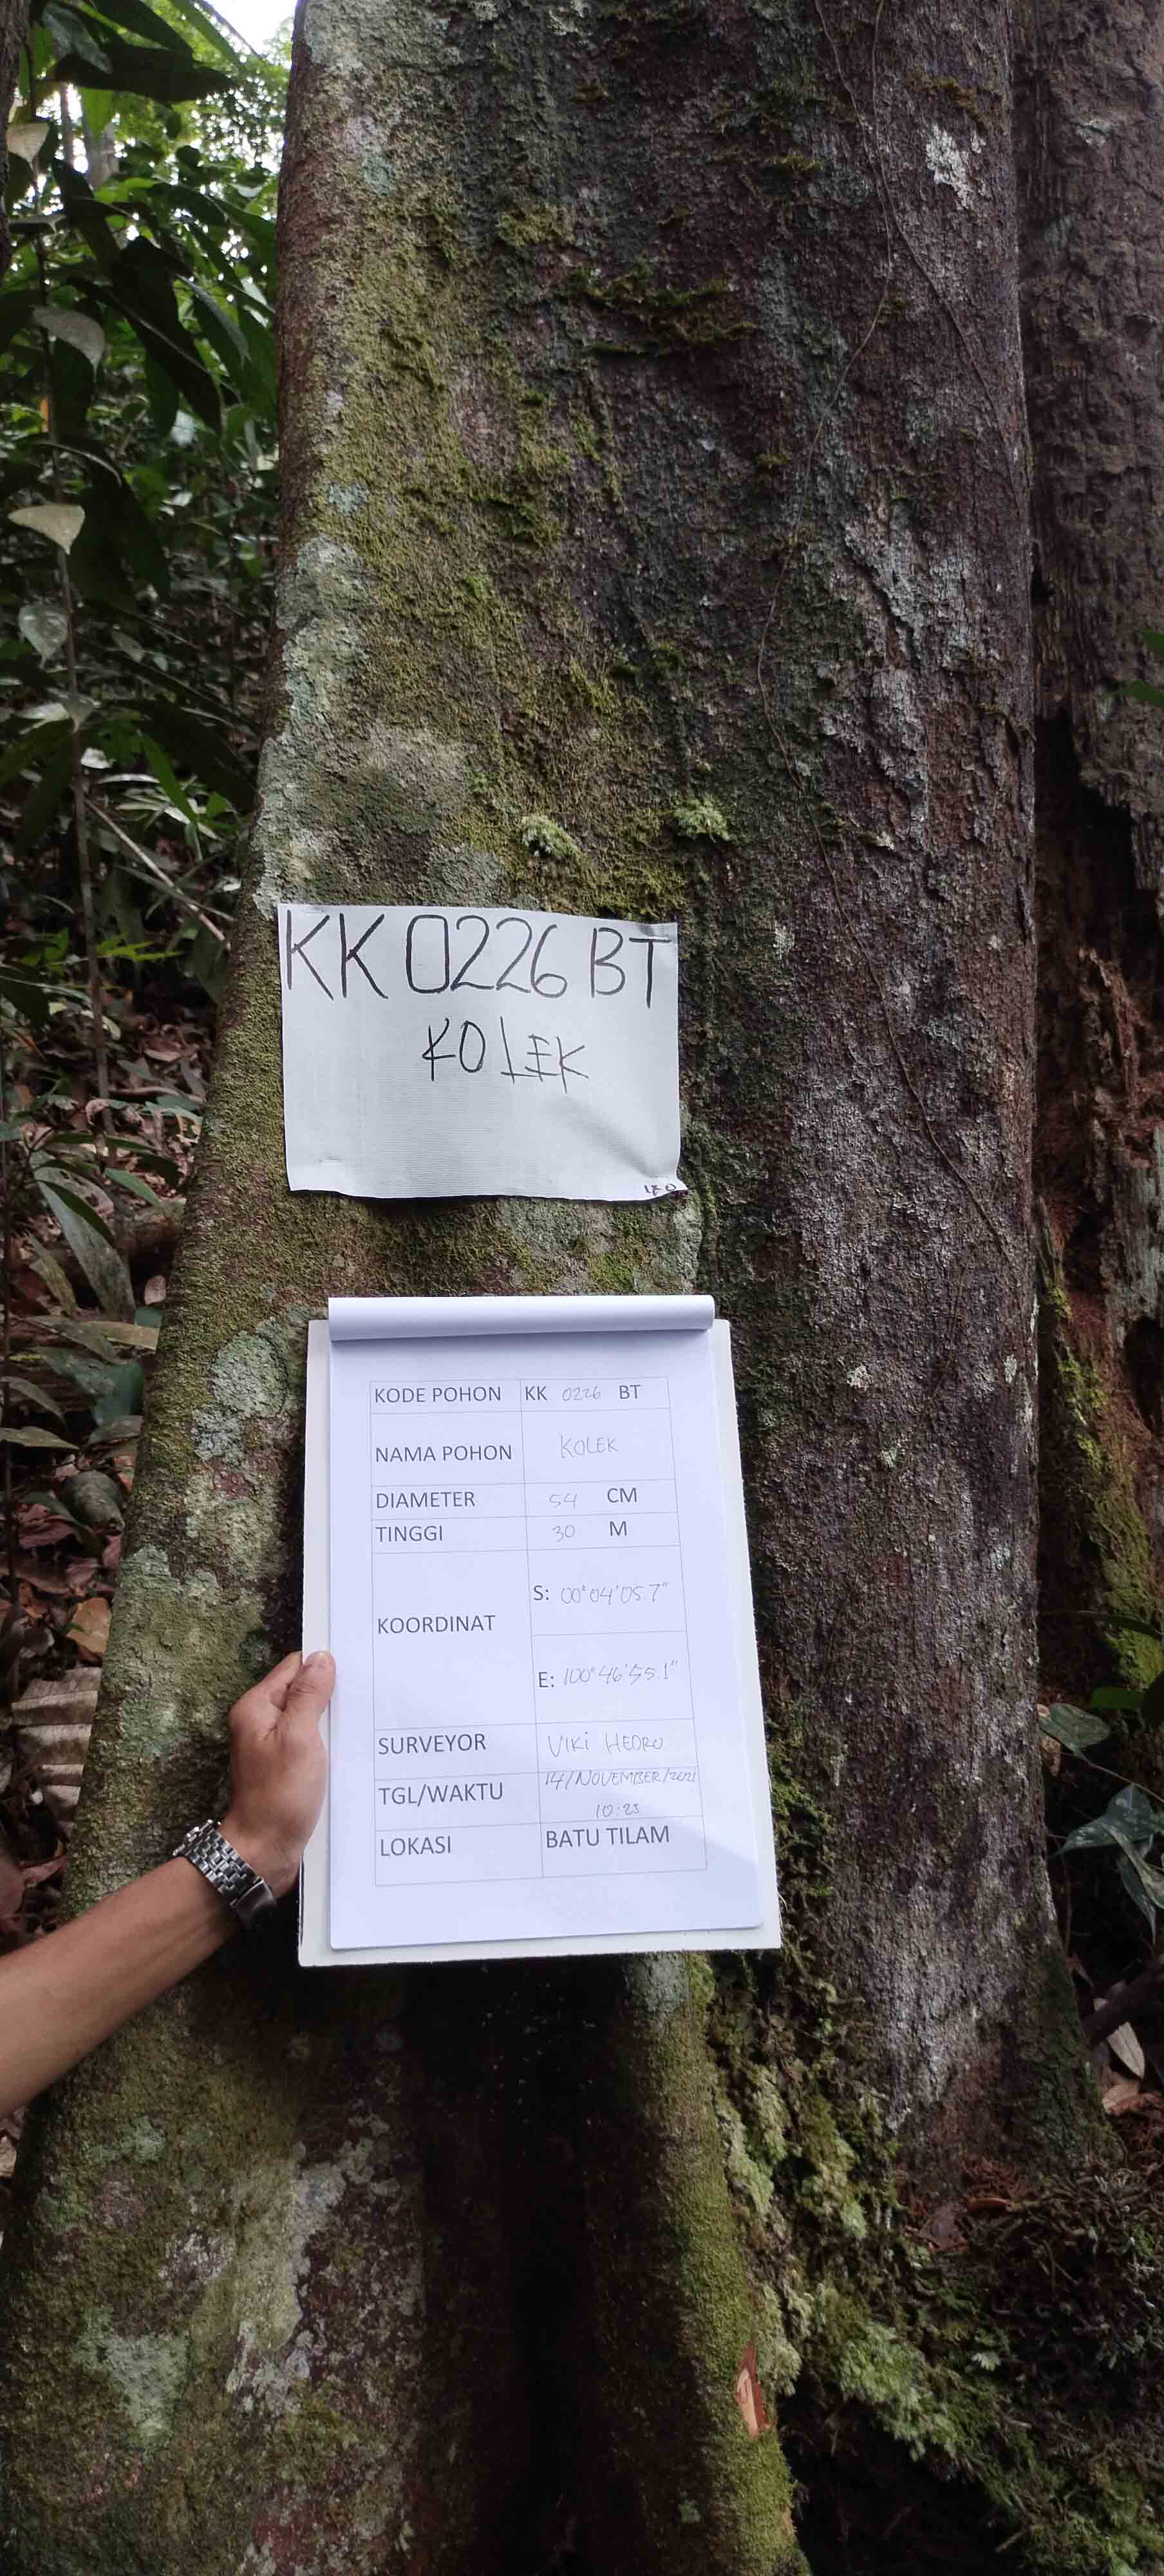 KK 0226 BT
KOLEK
KODE POHON KK 0226 BT
NAMA POHON KOLEK
DIAMETER 54 CM
TINGGI 30 M
KOORDINAT
S: 00°04'05.7"
E: 100°46'55.1"
SURVEYOR VIKI HEDRO
TGL/WAKTU 14/NOVEMBER/2021
10:23
LOKASI BATU TILAM